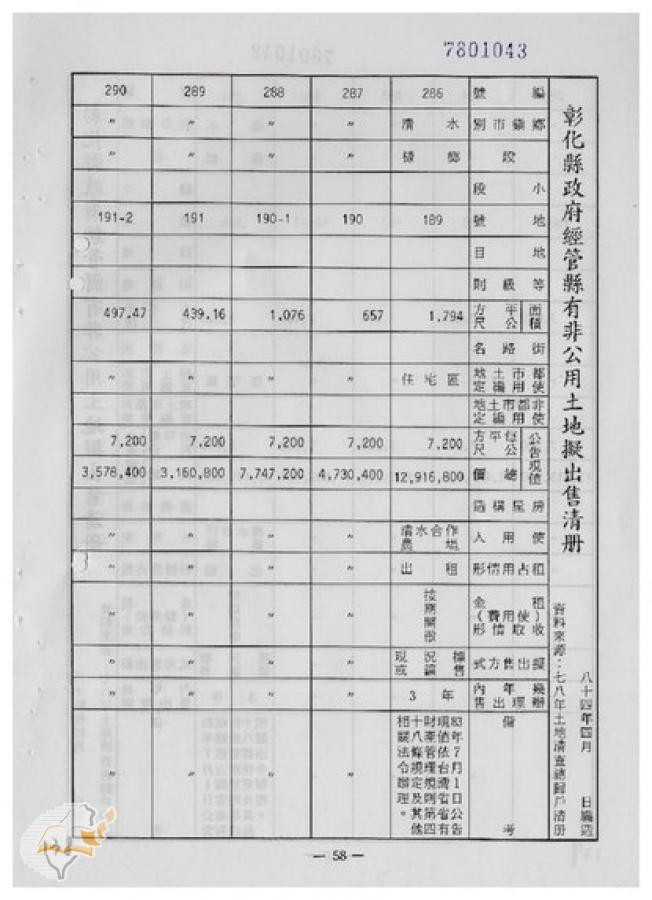 7801043
彰化縣政府經管縣有非公用土地擬出售清册
資料來源:七八年土地清查總歸戶清册
八十四年四月 日編造
編號 286 287 288 289 290
鄉鎮市別 清水 〃 〃 〃 〃
段 〃 〃 〃 〃
小段
地號 189 190 190-1 191 191-2
地目
等級則
面積 平方公尺 1,794 657 1,076 439.16 497.47
街路名
都市土地使用編定 住宅區 〃 〃 〃 〃
非都市土地使用編定
公告現值 每平方公尺 7,200 7,200 7,200 7,200 7,200
總價 12,916,800 4,730,400 7,747,200 3,160,800 3,578,400
房屋構造
使用人 清水合作農場 〃 〃 〃 〃
租占用情形 出租 〃 〃 〃 〃
租金(使用費)收取情形 按期開徵 〃 〃 〃 〃
擬出售方式 現況標售或讓售 〃 〃 〃 〃
幾年內辦理出售 3年 〃 〃 〃 〃
備考 83年7月1日公告現值依台灣省省有財產管理規則第四十八條規定及其他相關法令辦理。 〃 〃 〃 〃
— 58 —